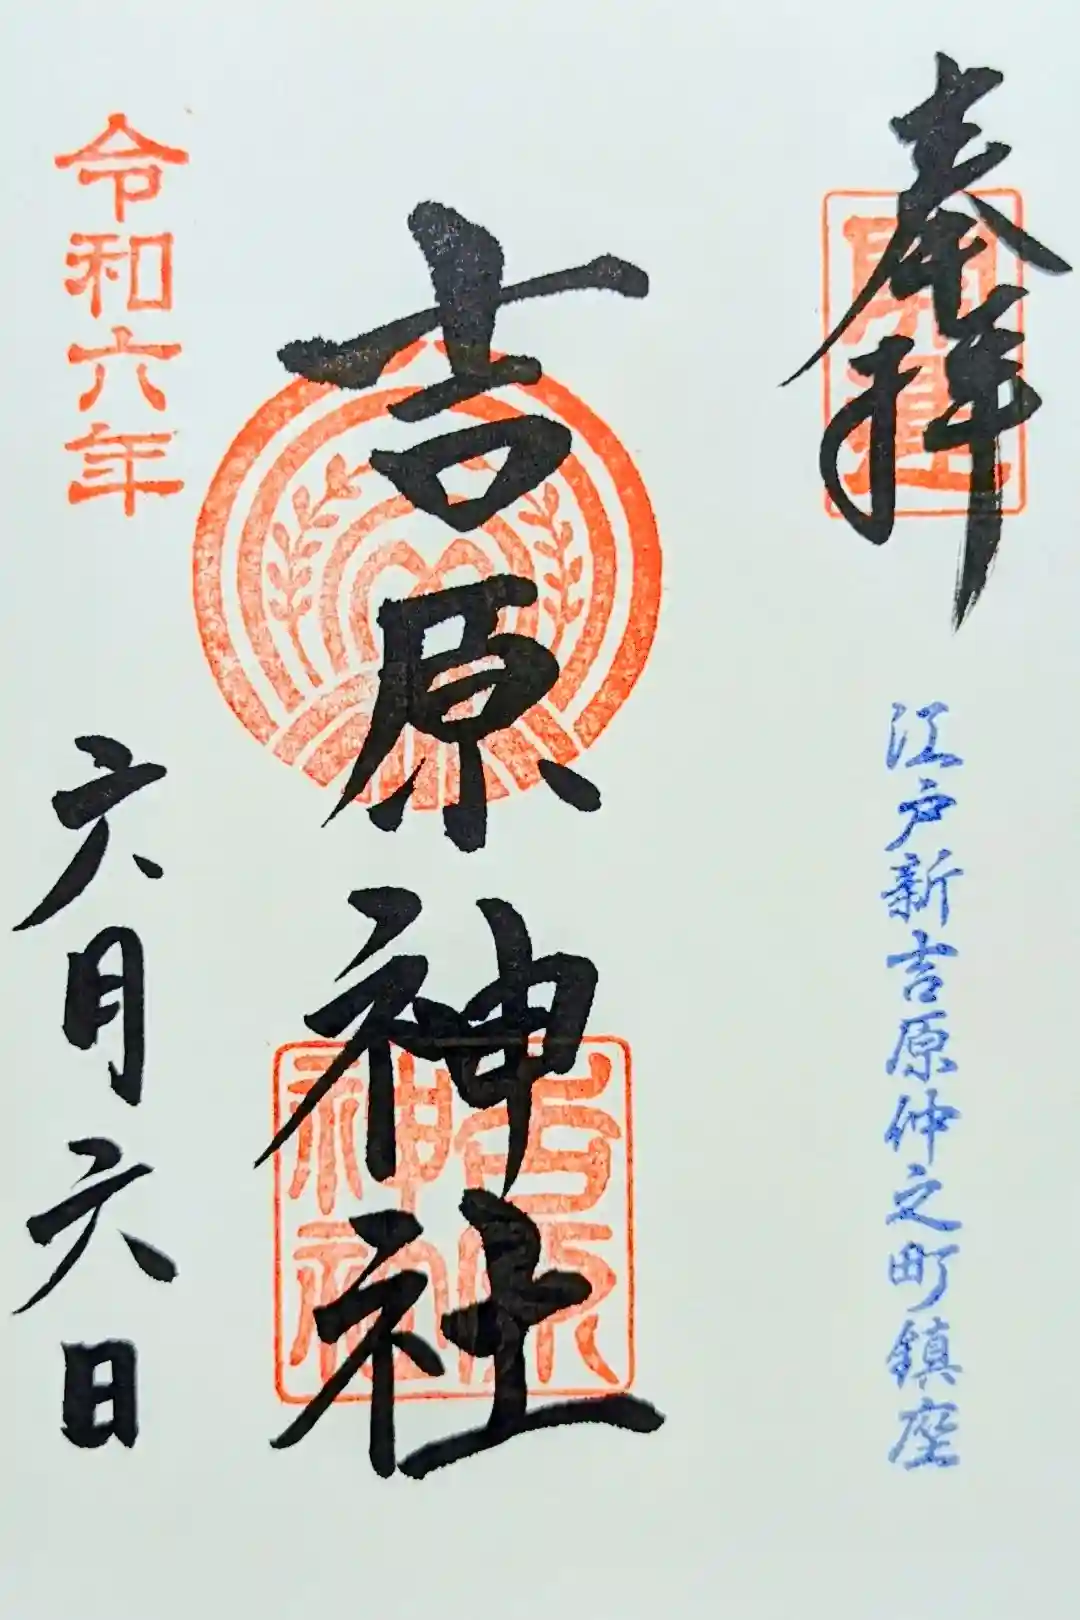 奉拝
開運
江戸新吉原仲之町鎮座
吉原神社
吉原神社
令和六年
六月六日